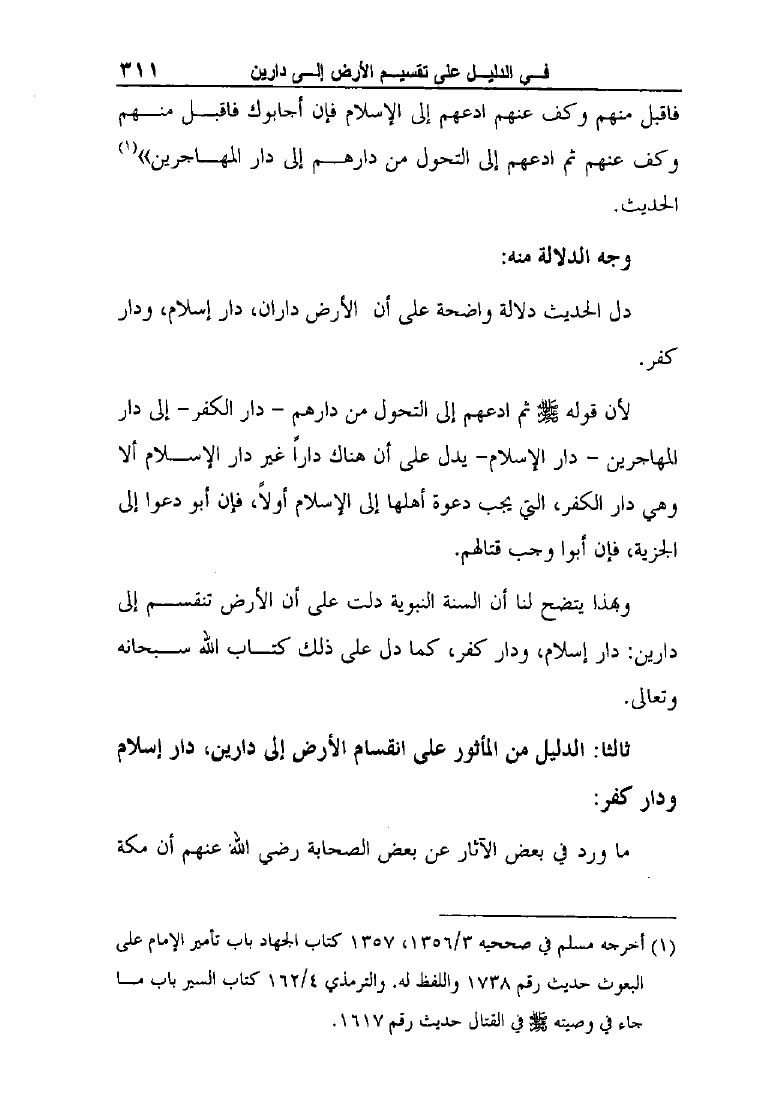 في الدليل على تقسيم الأرض إلى دارين ٣١١
فاقبل منهم وكف عنهم ادعهم إلى الإسلام فإن أجابوك فاقبل منهم
وكف عنهم ثم ادعهم إلى التحول من دارهم إلى دار المهاجرين»(١)
الحديث.
وجه الدلالة منه:
دل الحديث دلالة واضحة على أن الأرض داران، دار إسلام، ودار
كفر.
لأن قوله ﷺ ثم ادعهم إلى التحول من دارهم – دار الكفر– إلى دار
المهاجرين – دار الإسلام– يدل على أن هناك داراً غير دار الإسلام ألا
وهي دار الكفر، التي يجب دعوة أهلها إلى الإسلام أولاً، فإن أبو دعوا إلى
الجزية، فإن أبوا وجب قتالهم.
وبهذا يتضح لنا أن السنة النبوية دلت على أن الأرض تنقسم إلى
دارين: دار إسلام، ودار كفر، كما دل على ذلك كتاب الله سبحانه
وتعالى.
ثالثا: الدليل من المأثور على انقسام الأرض إلى دارين، دار إسلام
ودار كفر:
ما ورد في بعض الآثار عن بعض الصحابة رضي الله عنهم أن مكة
(١) أخرجه مسلم في صححيه ١٣٥٦/٣، ١٣٥٧ كتاب الجهاد باب تأمير الإمام على
البعوث حديث رقم ١٧٣٨ واللفظ له. والترمذي ١٦٢/٤ كتاب السير باب ما
جاء في وصيته ﷺ في القتال حديث رقم ١٦١٧.